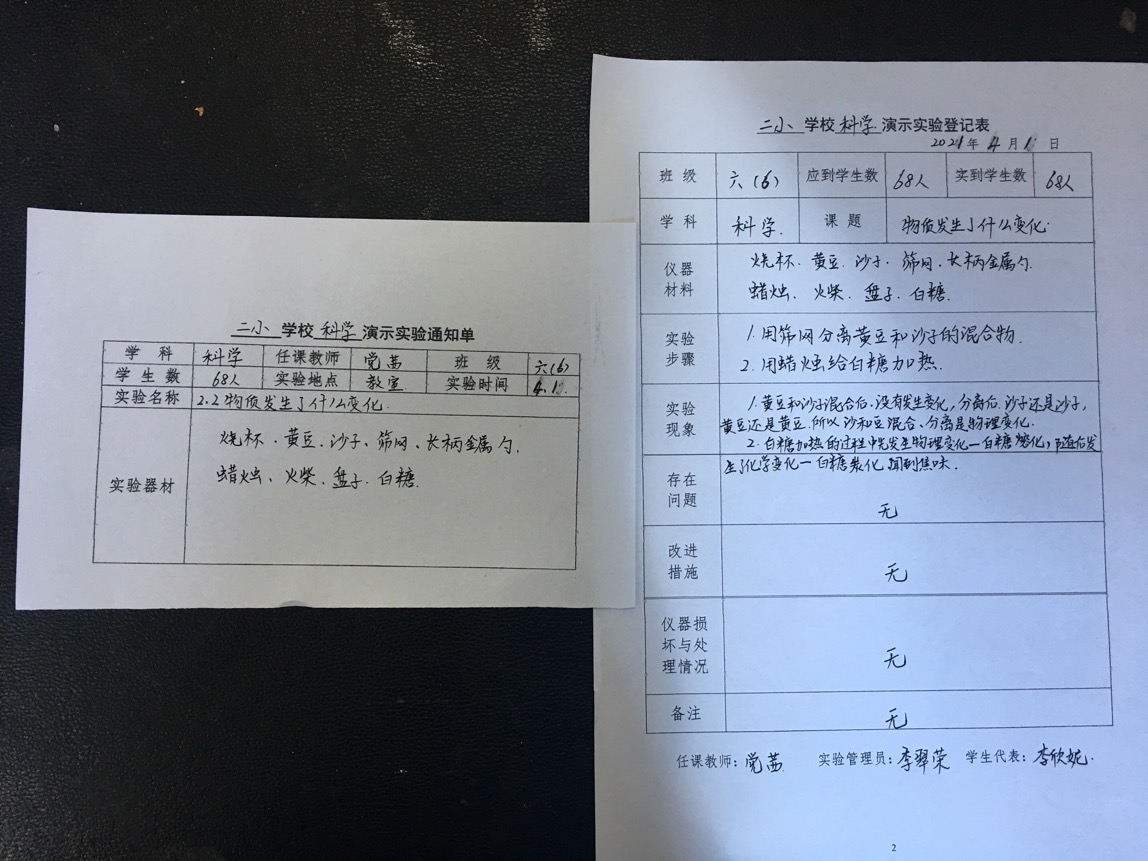 二小 学校 科学 演示实验通知单
学 科 科学 任课教师 党茜 班 级 六(6)
学 生 数 68人 实验地点 教室 实验时间 4.1
实验名称 2.2物质发生了什么变化.
实验器材
烧杯、黄豆、沙子、筛网、长柄金属勺.
蜡烛、火柴、盘子、白糖.
二小 学校 科学 演示实验登记表
2021年 4月1 日
班 级 六(6) 应到学生数 68人 实到学生数 68人
学 科 科学. 课 题 物质发生了什么变化.
仪器
材料
烧杯、黄豆、沙子、筛网、长柄金属勺.
蜡烛、火柴、盘子、白糖.
实验
步骤
1.用筛网分离黄豆和沙子的混合物.
2.用蜡烛给白糖加热.
实验
现象
1.黄豆和沙子混合后.没有发生变化,分离后.沙子还是沙子,
黄豆还是黄豆.所以沙和豆混合、分离是物理变化.
2.白糖加热的过程中先发生物理变化—白糖熔化,随后发
生了化学变化—白糖炭化.闻到焦味.
存在
问题
无
改进
措施
无
仪器损
坏与处
理情况
无
备注 无
任课教师:党茜 实验管理员:李翠荣 学生代表:李欣妮.
2